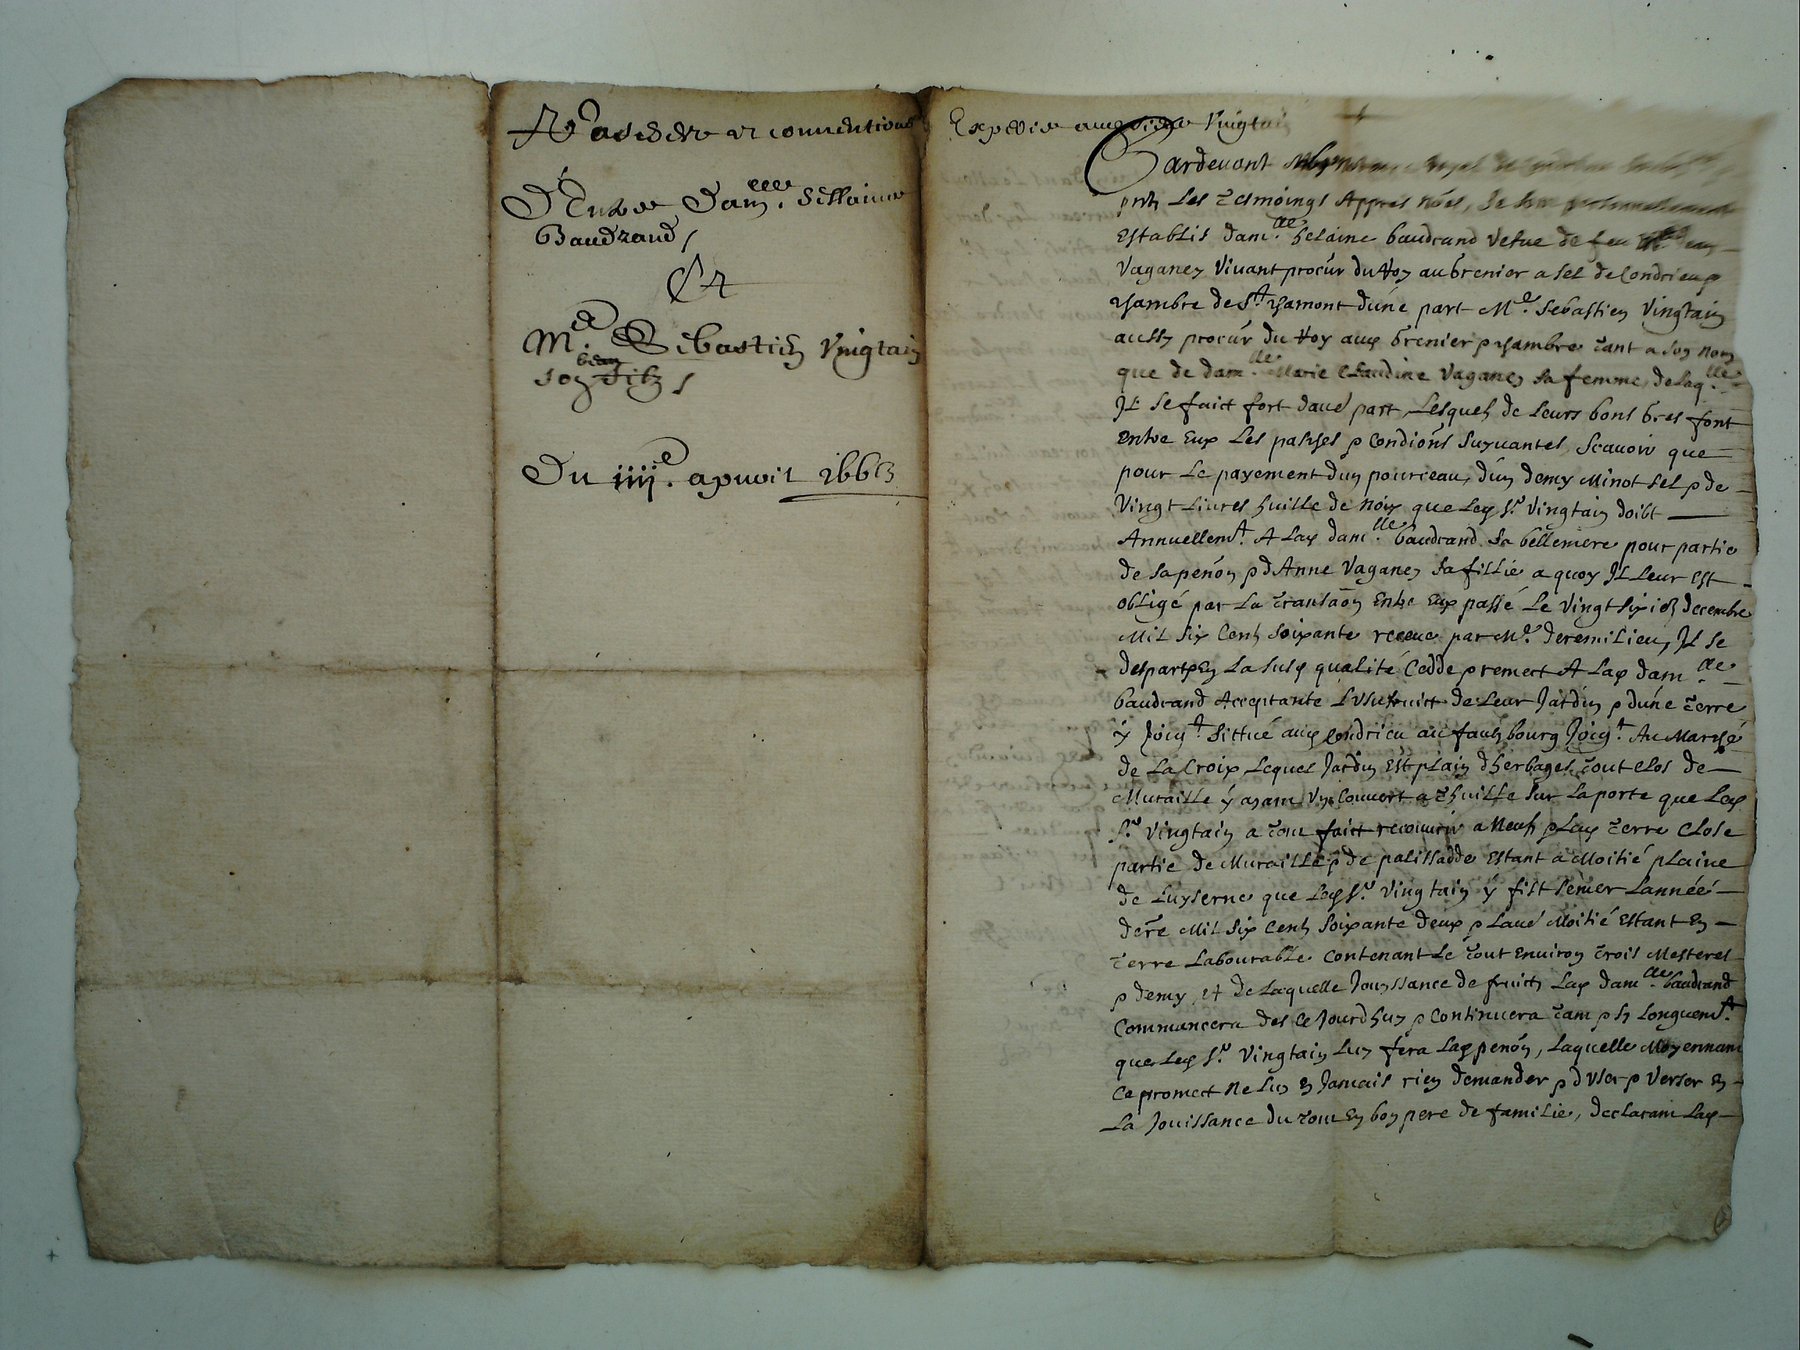 et conventions
D'Entre Dam.elle Hellaine
Baudrand
Et
M.e Sebastien Vingtain
son beau filz
Du iiii.e apvril 1663
Expedié aud sieur Vingtain
Pardevant royal
pntz Les Tesmoings Appres nōes, Se sont personnellement
Establis dam.lle helaine baudrand vefue de feu
Vaganey Vivant procūr du Roy au Grenier a Sel de Condrieu
chambre de S.t chamont dune part M.e Sebastien Vingtain
aussy procūr du Roy aud Grenier & chambre Tant a son nom
que de dam.lle Marie Claudine Vaganey Sa femme de laq.lle
Il Se faict fort dauē part, Lesquelz de Leurs bons gres font
Entre Eux Les pactes & Condiōns Suyvantes, Scavoir que
pour Le payement dun pourceau, dun demy Minot Sel & de
Vingt Livres huille de Noix que Led S.r Vingtain doibt
Annuellem.t A Lad dam.lle baudrand Sa bellemere pour partie
de Sa penōn & d'Anne Vaganey Sa fillie a quoy Il Leur Est
obligé par La Transaōn Entre Eux passé Le Vingt Sixie decembre
Mil Six Centz Soixante receue par M.e deremilieu, Il Se
despart En La Susd qualité Cedde & remect A Lad dam.lle
baudrand Acceptante Lusufruict de Leur Jardin & dune Terre
y Joig.t Sittué aud Condrieu au fauxbourg Joig.t Au Marché
de La Croix Lequel Jardin Est plain dherbages Tout clos de
Muraille y ayant Un Couvert a Thuille Sur La porte que Led
S.r Vingtain a Tout faict recouvrir a Neuf & Lad Terre Close
partie de Muraille & de palissadde Estant a Moitié plaine
de Luyserne que Led S.r Vingtain y fist Semer Lannéé
derē Mil Six Centz Soixante deux & Lauē Moitié Estant En
Terre Labourable Contenant Le Tout Environ Trois Mesteres
& demy, Et de Laquelle Jouyssance de fruictz Lad dam.lle baudrand
Commancera des Ce Jourdhuy & Continuera Tant & Sy Longuem.t
que Led S.r Vingtain Luy fera Lad penōn, Laquelle Moyennant
Ce promect Ne Luy En Jamais rien demander & dUser & Verser En
La Jouissance du Tout En bon pere de familie, declarant Lad